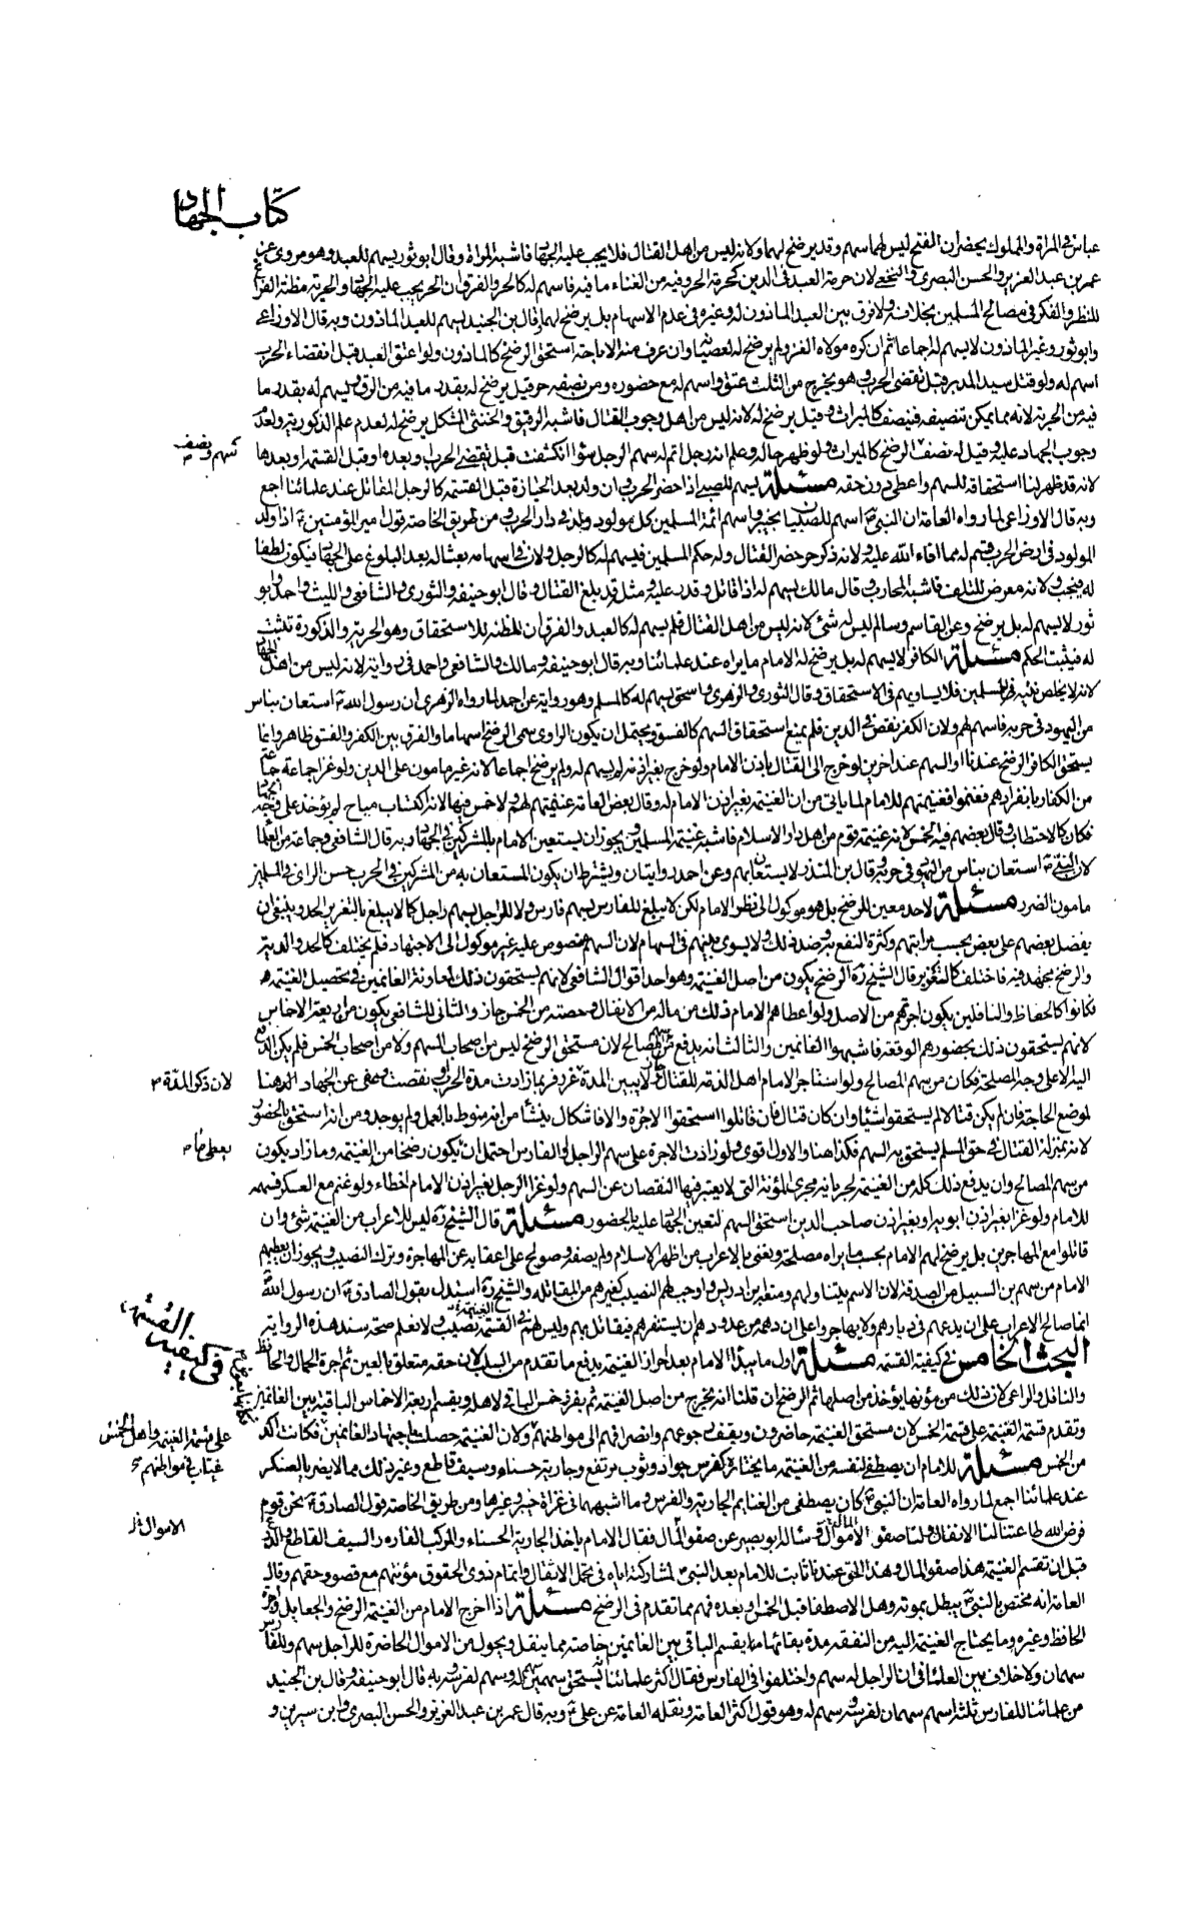 كتاب الجهاد
عباس في المراة والمملوك يحضران الفتح ليس لهما سهم وقد يرضخ لهما ولانه ليس من اهل القتال فلا يجب عليه الجهاد فاشبه المراة وقال ابو ثور يسهم للعبد وهو مروى عن
عمر بن عبد العزيز والحسن البصرى والنخعي لان حرمة العبد في الدين كحرمة الحر وفيه من الغناء ما فيه فاسهم له كالحر والفرق ان الحر يجب عليه الجهاد والحرية مظنة الفراغ
للنظر والفكر في مصالح المسلمين بخلافه ولا فرق بين العبد الماذون له وغيره في عدم الاسهام بل يرضخ لهما وقال بن الجنيد يسهم للعبد الماذون وبه قال الاوزاعي
وابو ثور وغير الماذون لا يسهم له اجماعا ثم ان كره مولاه الغزو لم يرضخ له لعصيانه وان عرف منه الاباحة استحق الرضخ كالماذون ولو اعتق العبد قبل انقضاء الحرب
اسهم له ولو قتل سيد المدبر قبل تقضى الحرب وهو يخرج من الثلث عتق واسهم له مع حضوره ومن نصفه حر قيل يرضخ له بقدر ما فيه من الرق ويسهم له بقدر ما
فيه من الحرية لانه مما يمكن تنصيفه فينصف كالميراث وقيل يرضخ له لانه ليس من اهل وجوب القتال فاشبه الرقيق والخنثى المشكل يرضخ له لعدم علم الذكورية ولعدم
وجوب الجهاد عليه وقيل له نصف الرضخ كالميراث ولو ظهر حاله وعلم انه رجل اتم له سهم الرجل سواء انكشف قبل تقضي الحرب وبعده او قبل القسمة او بعدها
سهم ونصف
لانه قد ظهر لنا استحقاقه للسهم واعطى دون حقه مسئلة يسهم للصبي اذا حضر الحرب وان ولد بعد الحيازة قبل القسمة كالرجل المقاتل عند علمائنا اجمع
وبه قال الاوزاعى لما رواه العامة ان النبي ص اسهم للصبيان بخيبر واسهم ائمة المسلمين كل مولود ولد في دار الحرب ومن طريق الخاصة قول امير المؤمنين ع اذا ولد
المولود في ارض الحرب قسم له مما افاء الله عليه ولانه ذكر حر حضر القتال وله حكم المسلمين فيسهم له كالرجل ولان في اسهامه بعثا له بعد البلوغ على الجهاد فيكون لطفا
له فيجب ولانه معرض للتلف فاشبه المحارب وقال مالك يسهم له اذا قاتل وقدر عليه ومثله قد بلغ القتال وقال ابو حنيفة والثورى والشافعى والليث واحمد وابو
ثور لا يسهم له بل يرضخ وعن القاسم وسالم ليس له شئ لانه ليس من اهل القتال فلم يسهم له كالعبد والفرق ان المظنة للاستحقاق وهو الحرية والذكورة تثبت
له فيثبت الحكم مسئلة الكافر لا يسهم له بل يرضخ له الامام ما يراه عند علمائنا وبه قال ابو حنيفة ومالك والشافعى واحمد في رواية لانه ليس من اهل الجهاد
لانه لا يخلص نيته في المسلمين فلا يساويهم في الاستحقاق وقال الثورى والزهرى واسحق يسهم له كالمسلم وهو رواية عن احمد لما رواه الزهرى ان رسول الله ص استعان بناس
من اليهود في حربه فاسهم لهم ولان الكفر نقص في الدين فلم يمنع استحقاق السهم كالفسق ويحتمل ان يكون الراوى سمى الرضخ اسهاما والفرق بين الكفر والفسق ظاهر وانما
يستحق الكافر الرضخ عندنا او السهم عند اخرين لو خرج الى القتال باذن الامام ولو خرج بغير اذنه لم يسهم له ولم يرضخ اجماعا لانه غير مامون على الدين ولو غزا جماعة
من الكفار بانفرادهم فغنموا فغنيمتهم للامام لما ياتى من ان الغنيمة بغير اذن الامام له وقال بعض العامة غنيمتهم لهم ولا خمس فيها لانه اكتساب مباح لم يؤخذ على وجه الجهاد
فكان كالاحتطاب وقال بعضهم فيه الخمس لانه غنيمة قوم من اهل دار الاسلام فاشبه غنيمة المسلمين ويجوز ان يستعين الامام بالمشركين في الجهاد وبه قال الشافعى وجماعة من العلماء
لان النبي ص استعان بناس من اليهود في حربه وقال بن المنذر لا يستعان بهم وعن احمد روايتان ويشترط ان يكون المستعان به من المشركين في الحرب حسن الراى في المسلمين
مامون الضرر مسئلة لا حد معين للرضخ بل هو موكول الى نظر الامام لكن لا يبلغ للفارس سهم فارس ولا للراجل سهم راجل كما لا يبلغ بالتعزير الحد وينبغى ان
يفضل بعضهم على بعض بحسب مراتبهم وكثرة النفع به وضد ذلك ولا يسوى بينهم في السهام لان السهم منصوص عليه غير موكول الى الاجتهاد فلم يختلف كالحد والدية
والرضخ مجتهد فيه فاختلف كالتعزير قال الشيخ ره الرضخ يكون من اصل الغنيمة وهو احد اقوال الشافعى لانهم يستحقون ذلك لمعاونة الغانمين في تحصيل الغنيمة
فكانوا كالحفاظ والناقلين يكون اجرتهم من الاصل ولو اعطاهم الامام ذلك من ماله من الانفال وحصته من الخمس جاز والثانى للشافعى يكون من اربعة الاخماس
لانهم يستحقون ذلك بحضورهم الوقعة فاشبهوا الغانمين والثالث انه يدفع من سهم المصالح لان مستحق الرضخ ليس من اصحاب السهم ولا من اصحاب الخمس فلم يكن الدفع
اليه الا على وجه المصلحة فكان من سهم المصالح ولو استاجر الامام اهل الذمة للقتال جاز ولا يبين المدة غرر فربما زادت مدة الحرب او نقصت وعفى عن الجهالة هنا
لان ذكر المدة
لموضع الحاجة فان لم يكن قتال لم يستحقوا شيئا وان كان قتال فان قاتلوا استحقوا الاجرة والا فاشكال ينشأ من انه منوط بالعمل ولم يوجد ومن انه استحق بالحضور
لانه بمنزلة القتال في حق المسلم يستحق به السهم فكذا هنا والاول اقوى ولو زادت الاجرة على سهم الراجل او الفارس احتمل ان يكون رضخا من الغنيمة وما زاد يكون
يعطى ما
من سهم المصالح وان يدفع ذلك كله من الغنيمة لجريانه مجرى المؤنة التى لا يعتبر فيها النقصان عن السهم ولو غزا الرجل بغير اذن الامام اخطاء ولو غنم مع العسكر فسهمه
للامام ولو غزا بغير اذن ابويه او بغير اذن صاحب الدين استحق السهم لتعين الجهاد عليه بالحضور مسئلة قال الشيخ ره ليس للاعراب من الغنيمة شئ وان
قاتلوا مع المهاجرين بل يرضخ لهم الامام بحسب ما يراه مصلحة ونعنى بالاعراب من اظهر الاسلام ولم يصفه وصولح على اعفائه عن المهاجرة وترك النصيب ويجوز ان يعطيهم
الامام من سهم بن السبيل من الصدقة لان الاسم يتناولهم ومنع ابن ادريس واوجب لهم النصيب كغيرهم من المقاتلة والشيخ ره استدل بقول الصادق ع ان رسول الله ص
انما صالح الاعراب على ان يدعهم في ديارهم ولا يهاجروا على ان دهمه من عدوه دهم ان يستنفرهم فيقاتل بهم وليس لهم في القسمة نصيب ولا نعلم صحة سند هذه الرواية
في كيفية القسمة
البحث الخامس في كيفية القسمة مسئلة اول ما يبدأ الامام بعد احراز الغنيمة يدفع ما تقدم من السلب لان حقه متعلق بالعين ثم اجرة الحمال والحافظ
والناقل والراعى لان ذلك من مؤنها يؤخذ من اصلها ثم الرضخ ان قلنا انه يخرج من اصل الغنيمة ثم يفرز خمس الباقى لاهله ويقسم اربعة الاخماس الباقية بين الغانمين
وتقدم قسمة الغنيمة على قسمة الخمس لان مستحق الغنيمة حاضرون ويقف رجوعهم وانصرافهم الى مواطنهم ولان الغنيمة حصلت باجتهاد الغانمين فكانت آكد
على قسمة الغنيمة واهل الخمس
غياب في مواطنهم
من الخمس مسئلة للامام ان يصطفى لنفسه من الغنيمة ما يختاره كفرس جواد وثوب مرتفع وجارية حسناء وسيف قاطع وغير ذلك مما لا يضر بالعسكر
عند علمائنا اجمع لما رواه العامة ان النبي ص كان يصطفى من الغنايم الجارية والفرس وما اشبههما في غزاة خيبر وغيرها ومن طريق الخاصة قول الصادق ع نحن قوم
فرض الله طاعتنا لنا الانفال ولنا صفو الاموال وساله ابو بصير عن صفو المال فقال الامام ياخذ الجارية الحسناء والمركب الفاره والسيف القاطع والدرع
الاموال
قبل ان تقسم الغنيمة هذا صفو المال وهذا الحق عندنا ثابت للامام بعد النبي ص لمشاركته اياه في تحمل الاثقال واتمام ذوى الحقوق مؤنتهم مع قصور حقهم وقال
العامة انه مختص بالنبي ص يبطل بموته وهل الاصطفا قبل الخمس او بعده فهم مما تقدم في الرضخ مسئلة اذا اخرج الامام من الغنيمة الرضخ والجعايل واجرة
الحافظ وغيره وما يحتاج الغنيمة اليه من النفقة مدة بقائها يقسم الباقى بين الغانمين خاصة مما ينقل ويحول من الاموال الحاضرة للراجل سهم وللفارس
سهمان ولا خلاف بين العلماء في ان الراجل له سهم واختلفوا في الفارس فقال اكثر علمائنا يستحق سهمين سهم له وسهم لفرسه وبه قال ابو حنيفة وقال بن الجنيد
من علمائنا للفارس ثلثة اسهم سهمان لفرسه وسهم له وهو قول اكثر العامة ونقله العامة عن على ع وبه قال عمر بن عبد العزيز والحسن البصرى وابن سيرين و